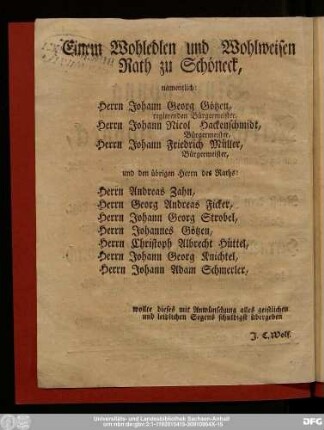 Einem Wohledlen und Wohlweisen
Rath zu Schöneck,
namentlich
Herrn Johann Georg Götzen,
regierenden Bürgermeister.
Herrn Johann Nicol Hackenschmidt,
Bürgermeister.
Herrn Johann Friedrich Müller,
Bürgermeister,
und den übrigen Herrn des Raths:
Herrn Andreas Zahn,
Herrn Georg Andreas Ficker,
Herrn Johann Georg Strobel,
Herrn Johannes Götzen,
Herrn Christoph Albrecht Hüttel,
Herrn Johann Georg Knichtel,
Herrn Johann Adam Schmerler,
wollte dieses mit Anwünschung alles geistlichen
und leiblichen Segens schuldigst übergeben
J. C. Wolf.
Universitäts- und Landesbibliothek Sachsen-Anhalt